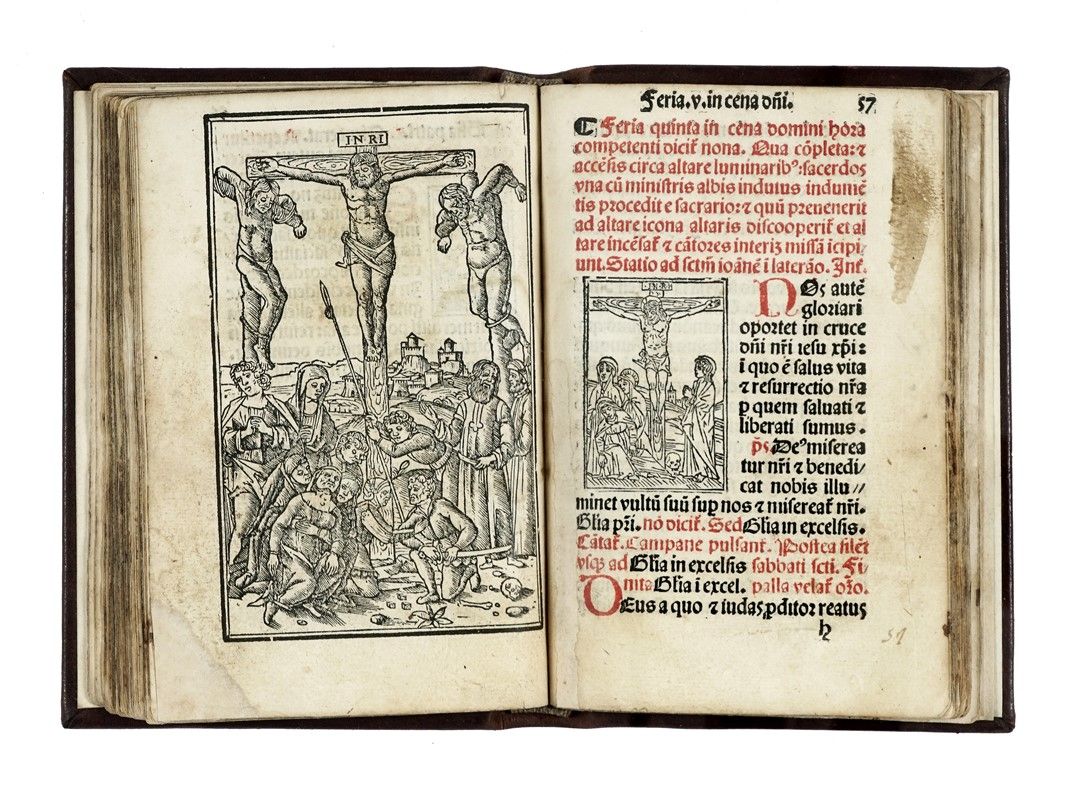 INRI
Feria.v.in cena dñi. 57
Feria quinta in cena domini hora
competenti dicit᷑ nona. Qua cõpleta: ⁊
accẽsis circa altare luminaribꝰ: sacerdos
vna cũ ministris albis indutus indumẽ
tis procedit e sacrario: ⁊ quũ preuenerit
ad altare icona altaris discooperit᷑ et al
tare incẽsat᷑ ⁊ cãtores interiꝫ missã ĩcipi
unt. Statio ad sctm̃ ioãnẽ ĩ laterão. Int̃.
INRI
NOs autẽ
gloriari
oportet in cruce
dñi nr̃i iesu xp̃i:
ĩ quo ẽ salus vita
⁊ resurrectio nr̃a
ꝑ quem saluati ⁊
liberati sumus.
p̃s. Deꝰ miserea
tur nr̃i ⁊ benedi/
cat nobis illu//
minet vultũ suũ suꝑ nos ⁊ misereat᷑ nr̃i.
Glia pr̃i. nõ dicit᷑. Sed Glia in excelsis.
Cãtat᷑. Campane pulsant᷑. Postea silẽt
vsqꝫ ad Glia in excelsis sabbati scti. Fi/
nita Glia ĩ excel. palla velat᷑ oro.
DEus a quo ⁊ iudas ꝓditor reatus
h
57